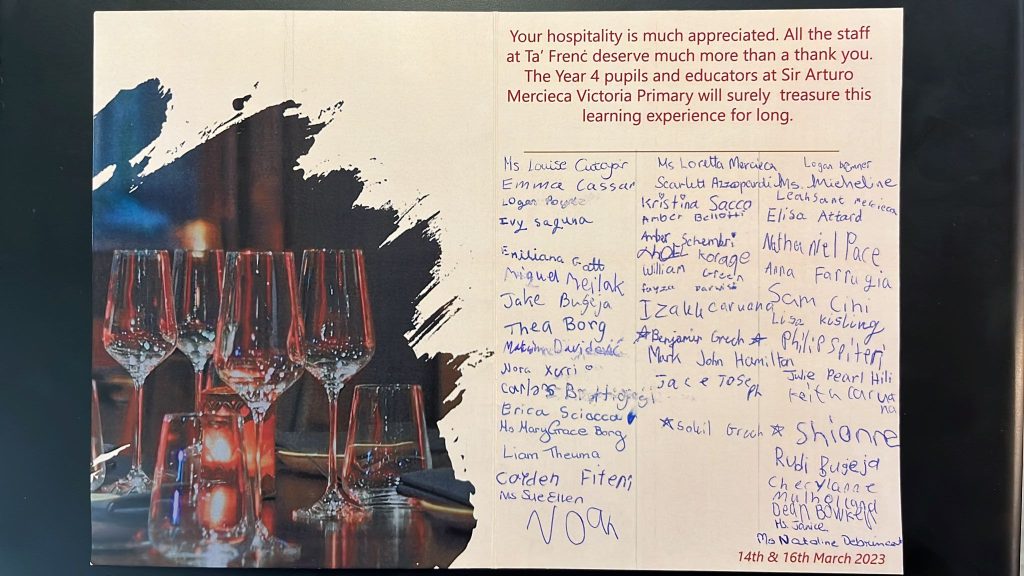 Your hospitality is much appreciated. All the staff
at Ta' Frenċ deserve much more than a thank you.
The Year 4 pupils and educators at Sir Arturo
Mercieca Victoria Primary will surely treasure this
learning experience for long.
Ms Louise
Emma Cassar
Logan
Ivy Saguna
Emiliana Gatt
Miguel Mejlak
Jake Bugeja
Thea Borg
Nora Xerri
Carlos
Erica Sciacca
Ms MaryGrace Borg
Liam Theuma
Cayden Fiteni
Ms Sue Ellen
Noah
Ms Loretta Mercieca
Scarlett Azzopardi
Kristina Sacco
Amber Bellotti
Amber Schembri
Korage
William Green
Fayza Darwish
Caruana
★ Benjamin Grech ★
Mark John Hamilton
Jace Jose
ph
★ Sohil Grech ★
Logan
Ms. Micheline
Leahsant Mercieca
Elisa Attard
Nathaniel Pace
Anna Farrugia
Sam Cini
Lisa Kisling
Philip Spiteri
Julie Pearl Hili
Keith Carua
na
Shianne
Rudi Bugeja
Cherylanne
Mulholland
Dean Bowkett
Ms Janice
Ms Nataline
14th & 16th March 2023